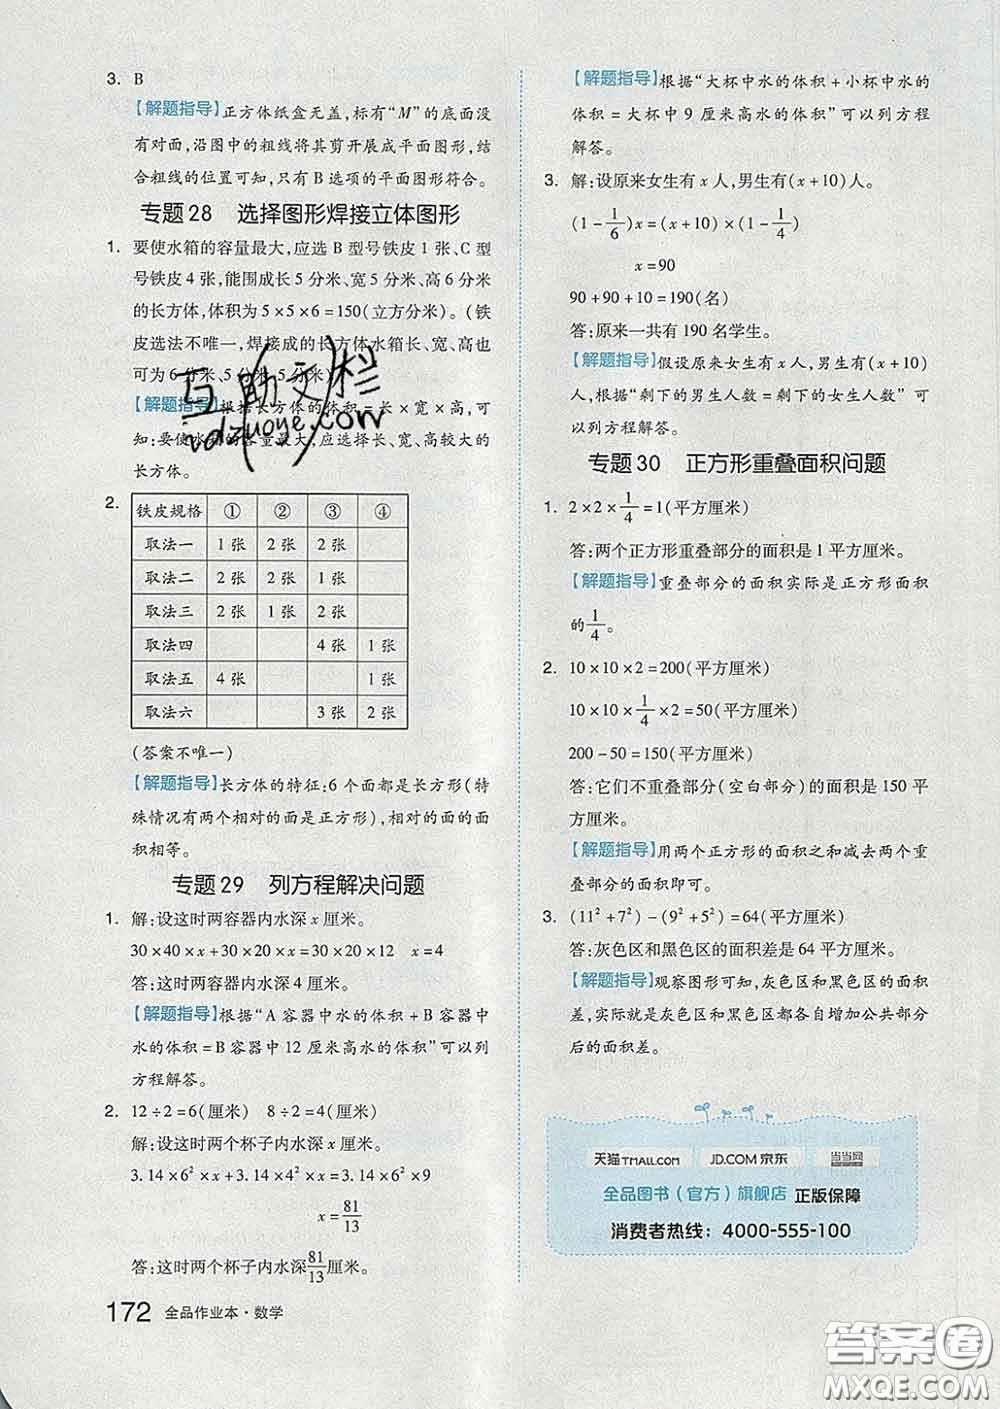 3. B
【解题指导】正方体纸盒无盖,标有“M”的底面没
有对面,沿图中的粗线将其剪开展成平面图形,结
合粗线的位置可知,只有 B 选项的平面图形符合。
专题28 选择图形焊接立体图形
1. 要使水箱的容量最大,应选 B 型号铁皮 1 张、C 型
号铁皮 4 张,能围成长 5 分米、宽 5 分米、高 6 分米
的长方体,体积为 5×5×6=150(立方分米)。(铁
皮选法不唯一,焊接成的长方体水箱长、宽、高也
可为 6 分米、5 分米、5 分米)
【解题指导】根据长方体的体积=长×宽×高,可
知:要使水箱的容量最大,应选择长、宽、高最大的
长方体。
2.
铁皮规格 ① ② ③ ④
取法一 1 张 2 张 2 张
取法二 2 张 2 张 1 张
取法三 2 张 1 张 2 张
取法四 4 张 1 张
取法五 4 张 1 张
取法六 3 张 2 张
(答案不唯一)
【解题指导】长方体的特征:6 个面都是长方形(特
殊情况有两个相对的面是正方形),相对的面的面
积相等。
专题29 列方程解决问题
1. 解:设这时两容器内水深 x 厘米。
30×40×x+30×20×x=30×20×12 x=4
答:这时两个容器内水深 4 厘米。
【解题指导】根据“A 容器中水的体积+B 容器中
水的体积=B 容器中 12 厘米高水的体积”可以列
方程解答。
2. 12÷2=6(厘米) 8÷2=4(厘米)
解:设这时两个杯子内水深 x 厘米。
3.14×6²×x+3.14×4²×x=3.14×6²×9
x=81/13
答:这时两个杯子内水深81/13厘米。
172 全品作业本·数学
【解题指导】根据“大杯中水的体积+小杯中水的
体积=大杯中 9 厘米高水的体积”可以列方程
解答。
3. 解:设原来女生有 x 人,男生有(x+10)人。
(1-1/6)x=(x+10)×(1-1/4)
x=90
90+90+10=190(名)
答:原来一共有 190 名学生。
【解题指导】假设原来女生有 x 人,男生有(x+10)
人,根据“剩下的男生人数=剩下的女生人数”可
以列方程解答。
专题30 正方形重叠面积问题
1. 2×2×1/4=1(平方厘米)
答:两个正方形重叠部分的面积是 1 平方厘米。
【解题指导】重叠部分的面积实际是正方形面积
的1/4。
2. 10×10×2=200(平方厘米)
10×10×1/4×2=50(平方厘米)
200-50=150(平方厘米)
答:它们不重叠部分(空白部分)的面积是 150 平
方厘米。
【解题指导】用两个正方形的面积之和减去两个重
叠部分的面积即可。
3. (11²+7²)-(9²+5²)=64(平方厘米)
答:灰色区和黑色区的面积差是 64 平方厘米。
【解题指导】观察图形可知,灰色区和黑色区的面积
差,实际就是灰色区和黑色区都各自增加公共部分
后的面积差。
天猫TMALL.COM JD.COM 京东 当当网
全品图书(官方)旗舰店 正版保障
消费者热线:4000-555-100
互助文栏
答案卷
MXQE.COM